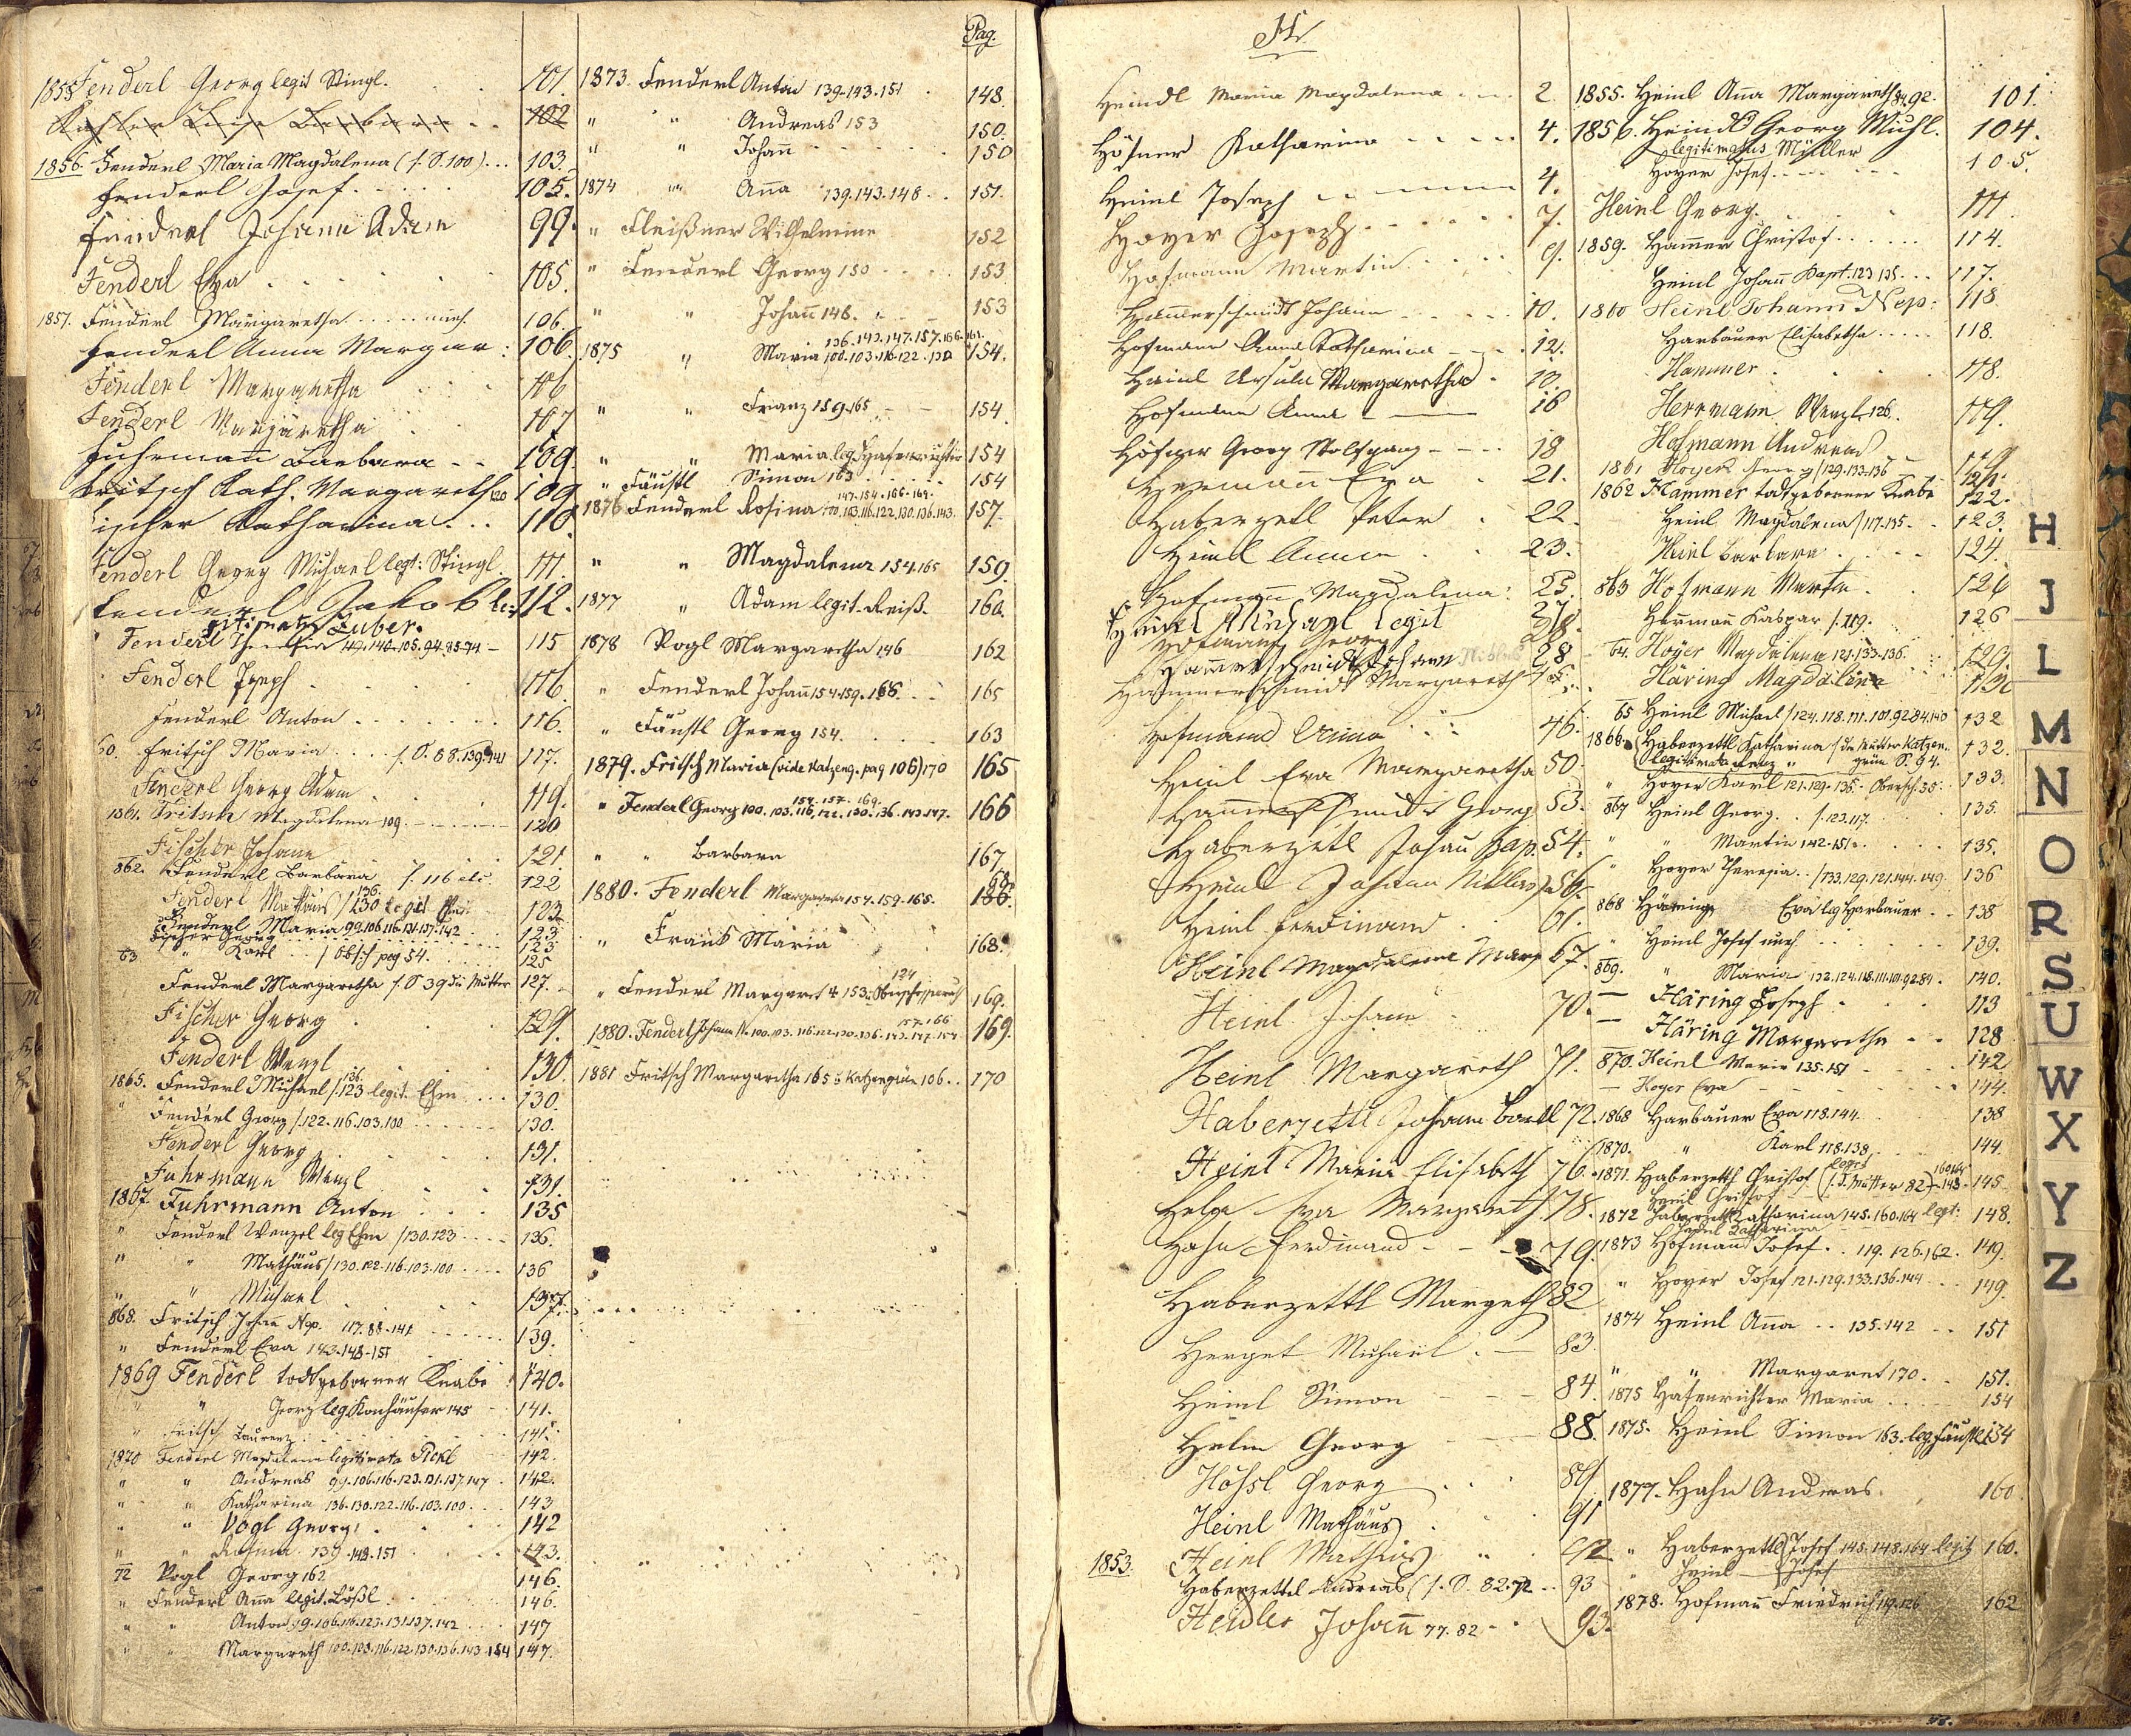 1855 Fenderl Georg legit Stingl. 101.
102
1856. Fenderl Maria Magdalena (f. S. 100) ... 103.
Fenderl Josef. 105.
Fenderl Johann Adam 99.
Fenderl Eva 105.
1857. Fenderl Margaretha 106.
Fenderl Anna Margar: 106.
Fenderl Margaretha 106
Fenderl Margaretha 107
Fuhrmañ Barbara 109.
Fritsch Kath. Margareth 120 109
ischer Katharina 110.
Fenderl Georg Michael legt: Stingl. 111.
Fenderl Jakob le- 112.
gitimatus Zuber.
Fenderl 140.105.94.85.74 - 115
Fenderl Joseph 116.
Fenderl Anton 116.
60. Fritsch Maria f. S. 88.139.141 117.
Fenderl Georg Adam 119.
1861. Fritsch Magdalena 109 120
Fischer Johann 121.
862. Fenderl Barbara f. 116 etc. 122
Fenderl Mathäus /130 legit 136. 123
Fenderl Maria 99.106.116.131.137.142 123
ischer Georg 125
63 " Karl / Obsch pag 54. 125
Fenderl Margaretha f. S 39 die Mutter 127.
Fischer Georg 129.
Fenderl Wenzl 130.
1865. Fenderl Michael /.123 legit. Ehm 136. 130.
" Fenderl Georg /.122.116.103.100 130.
Fenderl Georg 131.
Fuhrmann Wenzl 131.
1867. Fuhrmann Anton 135
" Fenderl Wenzel leg Ehm /130.123 136.
" " Mathäus /130.122.116.103.100 136
" " Michael 137.
868. Fritsch Johañ Nep. 117.88.141 139.
" Fenderl Eva 143.148.151
1869 Fenderl todtgeborner Knabe 140.
" " Georg leg Konhäuser 145 141.
" Fritsch Laurenz 141.
1870 Fenderl Magdalena legitimata Pickl 142.
" " Andreas 99.106.116.123.131.137.147 142.
" " Katharina 136.130.122.116.103.100 143
" " Vogl Georg 142
" " Rosina 139.148.151 143.
72 Vogl Georg 162 146.
" Fenderl Aña legit. Lößl 146.
" " Anton 99.106.116.123.131.137.142 147
" " Margareth 100.103.116.122.130.136.143.154 147.
Pag.
1873. Fenderl Anton 139.143.151 148.
" " Andreas 153 150.
" " Johañ 150
1874 " Aña 139.143.148 151.
" Fleißner Wilhelmine 152
" Fenderl Georg 150 153
" " Johañ 148. 153
136.143.147.157.166.169.
1875 " Maria 100.103.116.122.130 154.
" " Franz 159.165 154
" " Maria leg Hafenrichter 154
" Fäustl Simon 163 154
147.154.166.169.
1876 Fenderl Rosina 100.103.116.122.130.136.143. 157.
" " Magdalena 154.165 159.
1877 " Adam legit. Reiß. 160.
1878 Vogl Margaretha 146 162
" Fenderl Johañ 154.159.168 165
" Fäustl Georg 154. 163
1879. Fritsch Maria (vide Katzeng. pag 106) 170 165
154.157.169.
" Fenderl Georg 100.103.116.122.130.136.143.147. 166
" " Barbara 167
1880. Fenderl Margaretha 154.159.165. 168.
" Frank Maria 168.
124
" Fenderl Margaret 169.
157.166
1880. Fenderl Johann N. 100.103.116.122.130.136.143.147.154 169.
1881 Fritsch Margaretha 165 Katzengrün 106 170
H.
Heindl Maria Magdalena 2.
Höfner Katharina 4.
Heinl Joseph 4.
Hoyer Joseph 7.
Hofmann Martin 9.
Hammerschmidt Johann 10.
Hofmann Anna Katharina 12.
Heinl Ursula Margaretha 13.
Hofmann Anna 16
Höfner Georg Wolfgang 18
Hermañ Eva 21.
Haberzetl Peter 22.
Heinl Anna 23.
Hofmañ Magdalena 25.
Heinl Michael legit 27.
Hofmann Georg 28.
Hammerschmidt Johann 28
Hammerschmidt Margareth 45.
Hofmann Anna 46.
Heinl Eva Margaretha 50.
Hammerschmidt Georg 53.
Haberzetl Johañ Bap. 54.
Heinl Johann Niklas 56.
Heinl Ferdinand 61.
Heinl Magdalena Marg 67.
Heinl Johann 70.
Heinl Margareth 71.
Haberzettl Johann Bartl 72.
Heinl Maria Elisabeth 76.
Helm Eva Margareth 78.
Hahn Ferdinand 79.
Haberzettl Margeth 82
Herget Michael 83.
Heinl Simon 84.
Helm Georg 88.
Hößl Georg 89
Heinl Mathäus 91
1853. Heinl Mathias 92
Haberzettel Andreas (f. S. 82.72 93
Heidler Johañ 77.82 93.
1855. Heinl Aña Margareth 84.92. 101.
1856. Heindl Georg Michl. 104.
legitimatus Müller
Hoyer Josef 105.
Heinl Georg. 111.
1859. Hammer Christof 114.
Heinl Johañ Bapt. 123.135 117.
1860 Heinl Johann Nep: 118.
Harbauer Elisabetha 118.
Hammer 118.
Herrmann Wenzl 126. 119.
Hofmann Andreas 119
1861 Hoyer Georg /129.133.136 121.
1862 Hammer todtgeborner Knabe 122.
Heinl Magdalena /117.135 123.
Heinl Barbara 124.
863 Hofmann Martin 126
Hermañ Kaspar /.119. 126
64. Hoyer Magdalena 121.133.136. 129.
Häring Magdalena 131
65 Heinl Michael /124.118.111.101.92.84.140 132
1866. Haberzettl Katharina / die Mutter Katzen- 132.
legitimata Lenz " grün S. 94.
" Hoyer Karl 121.129.136. Obersch. 35. 133.
867 Heinl Georg. /.123.117. 135.
" " Martin 142.151. 135.
" Hoyer Theresia /133.129.121.144.149 136
868 Häring Eva leg Harbauer 138
" Heinl Josef 139.
869. " Maria 132.124.118.111.101.92.84. 140.
— Häring Joseph 113
— Häring Margaretha 128
870. Heinl Maria 135.151 142
— Hoyer Eva 144.
1868 Harbauer Eva 118.144. 138
1870. " Karl 118.138 144.
1871. Haberzettl Christof (f. d. Mutter 82) 148. 145
Heinl Christof
1872 Haberzettl Katharina 145.160.164 legt: 148.
Heinl Katharina
1873 Hofmañ Josef 119.126.162. 149.
" Hoyer Josef 121.129.133.136.144 149.
1874 Heinl Aña 135.142 151
" " Margaret 170. 151.
1875 Hafenrichter Maria 154
1875. Heinl Simon 163. leg Fäustl 154
1877. Hahn Andreas. 160
" Haberzettl Josef 145.148.164 legit 160.
" Heinl Josef
1878. Hofmañ Friedrich 119.126 162
H
J
L
M
N
O
R
S
U
W
X
Y
Z